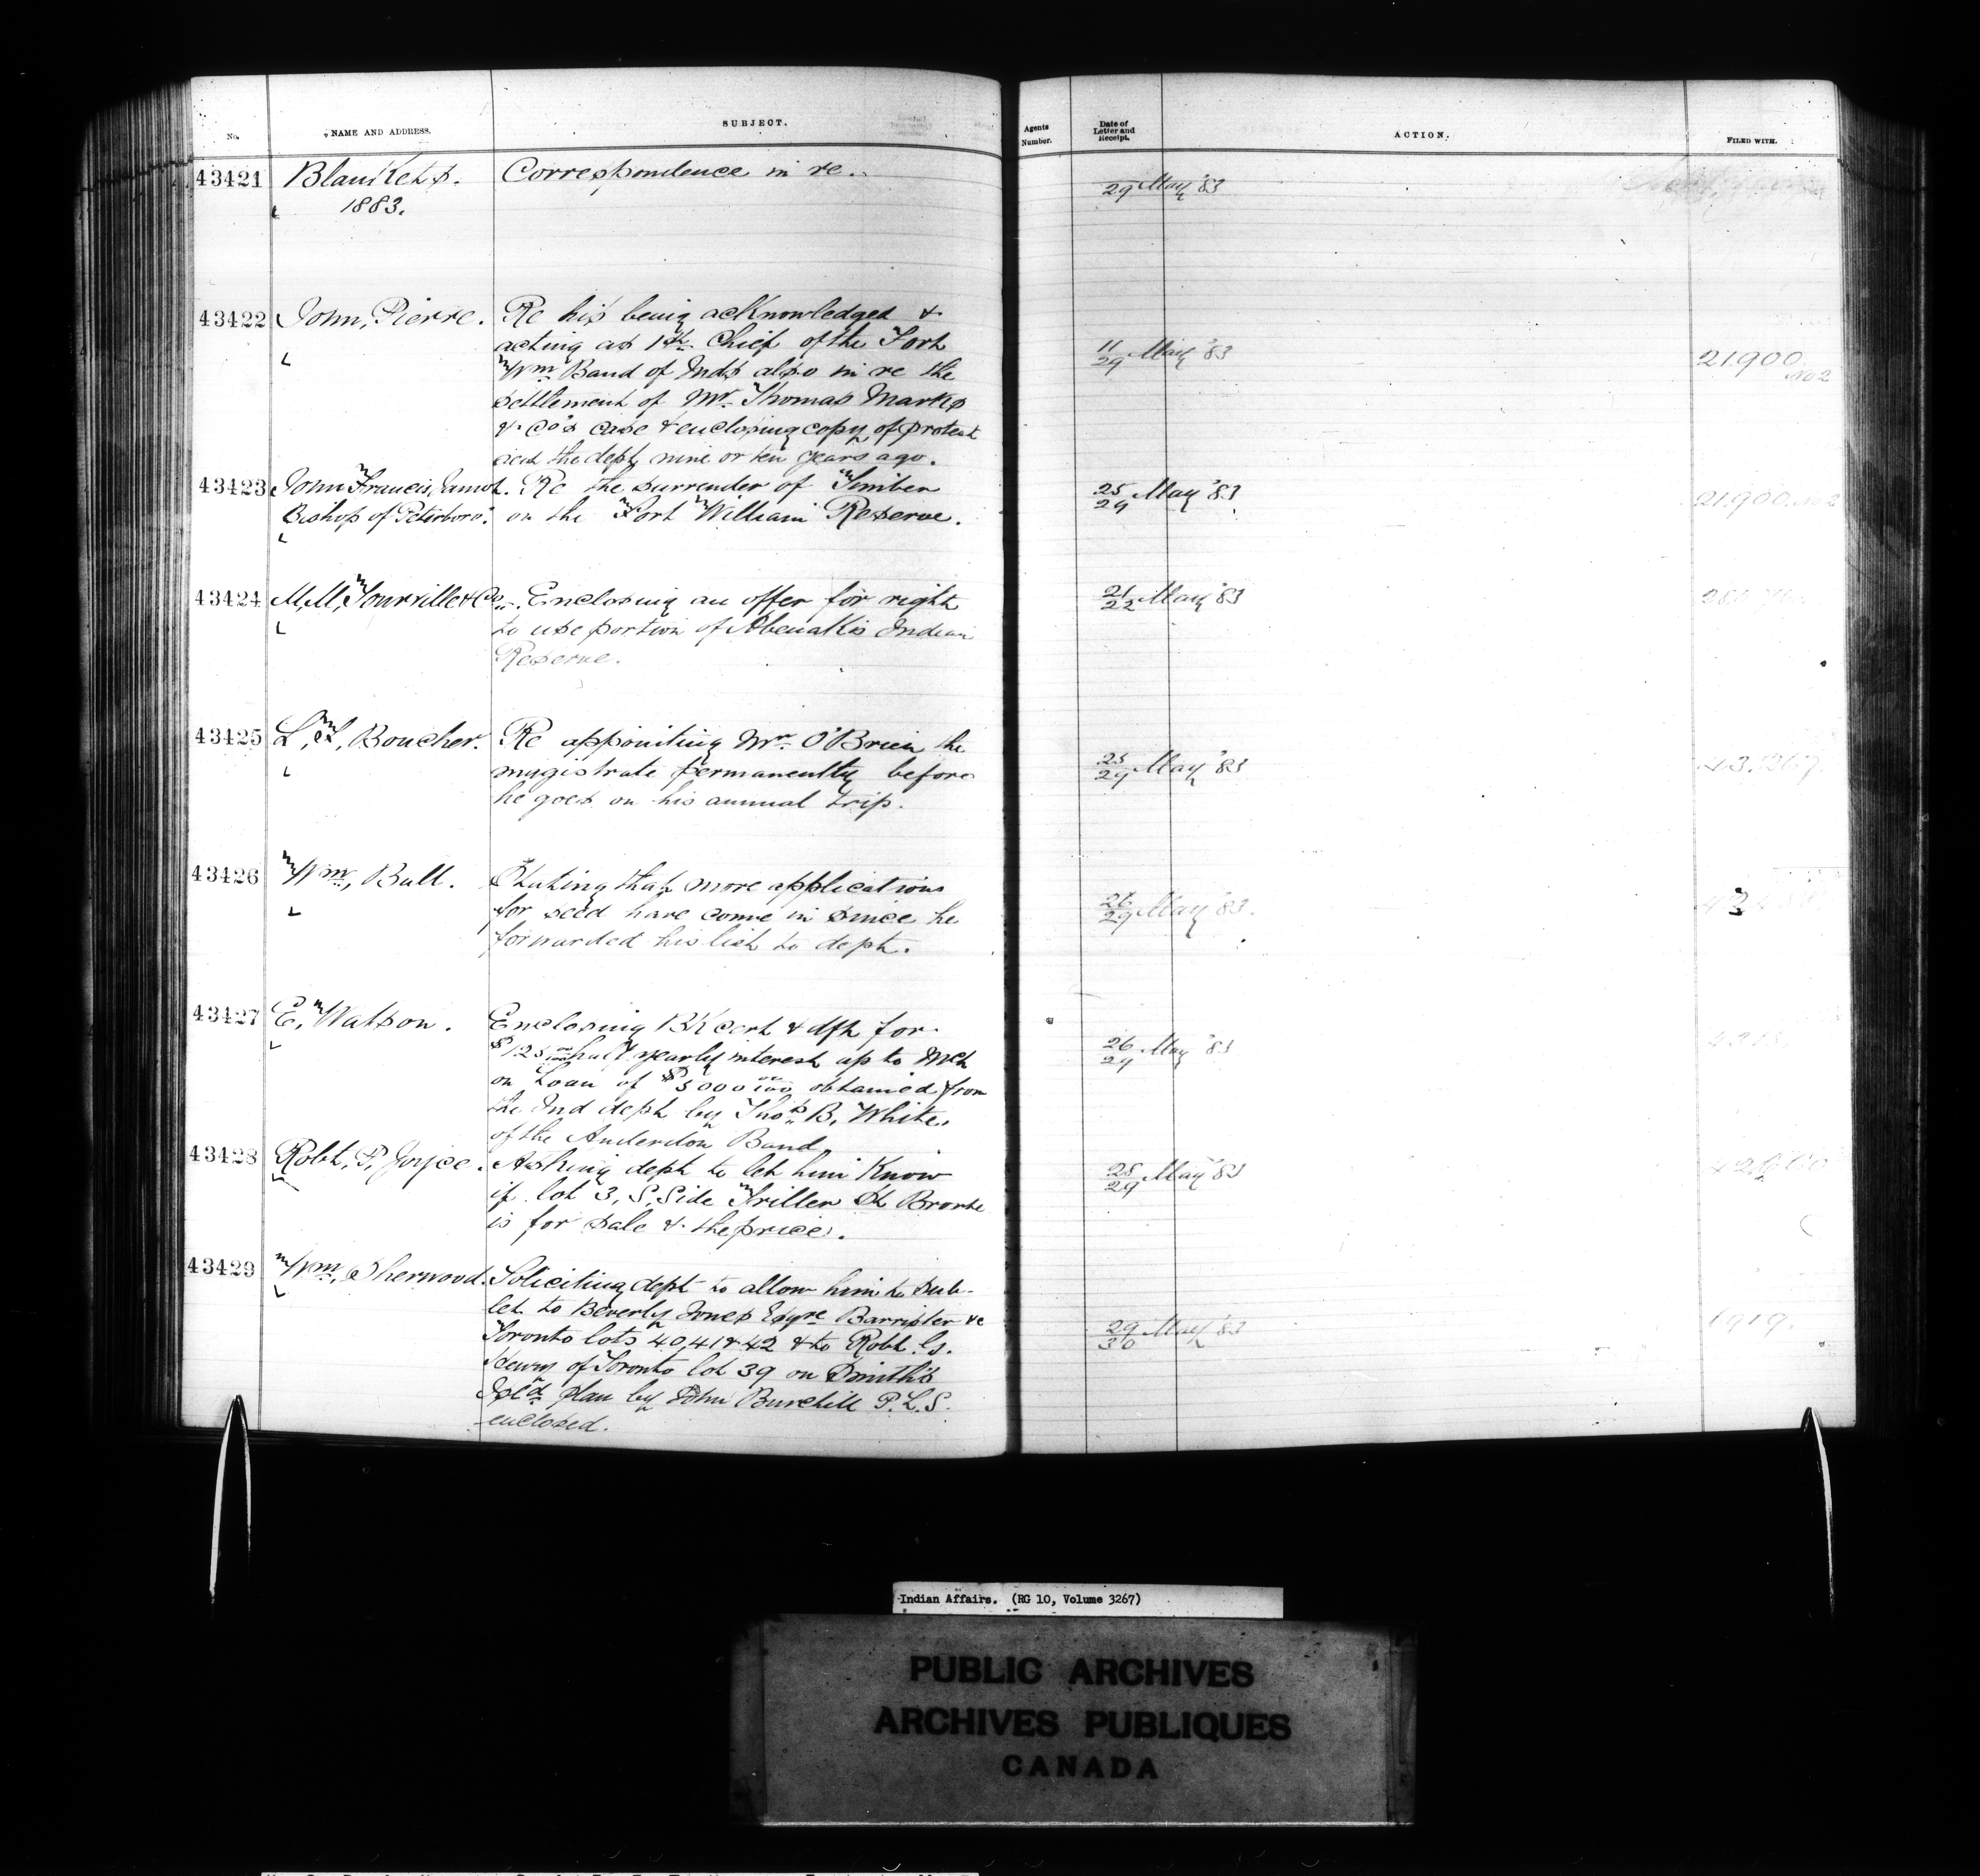 No.
NAME AND ADDRESS.
SUBJECT.
Agents Number.
Date of Letter and Receipt.
ACTION.
FILED WITH.
43421 Blankets. Correspondence in re.
1883.
29 May '83
43422 John, Pierre. Re his being acknowledged &
acting as 1st Chief of the Fort
Wm Band of Inds also in re the
settlement of Mr Thomas Marks
& Co's case & enclosing copy of protest
the dept nine or ten years ago.
11/29 May '83
21.900 No 2
43423 John Francis, Jamot. Re the surrender of Timber
Bishop of Peterboro'. on the Fort William Reserve.
25/29 May '83
21.900 No 2
43424 M.M. Tourville & Co. Enclosing an offer for right
to use portion of Abenakis Indian
Reserve.
21/22 May '83
43425 L, Boucher. Re appointing Mr O'Brien the
magistrate permanently before
he goes on his annual trip.
25/29 May '83
43.267
43426 Wm, Bull. Stating that more applications
for seed have come in since he
forwarded his list to dept.
29 May '83.
43427 E, Watson. Enclosing BK cert & dft for
$125 00/100 half yearly interest up to Mch
on Loan of $5000 00/100 obtained from
the Ind dept by Thos B. White,
of the Anderdon Band
26/29 May '83
43428 Robt, P, Joyce. Asking dept to let him Know
if lot 3, S. Side Triller St Bronte
is for sale & the price.
28/29 May '83
43429 Wm, Sherwood. Soliciting dept to allow him to sub-
let to Beverly Jones Esqre Barrister &c
Toronto lots 40, 41 & 42 & to Robt.
of Toronto lot 39 on Smith's
Isld plan by John Burchill P.L.S.
enclosed.
29/30 May '83
1919.
Indian Affairs. (RG 10, Volume 3267)
PUBLIC ARCHIVES
ARCHIVES PUBLIQUES
CANADA